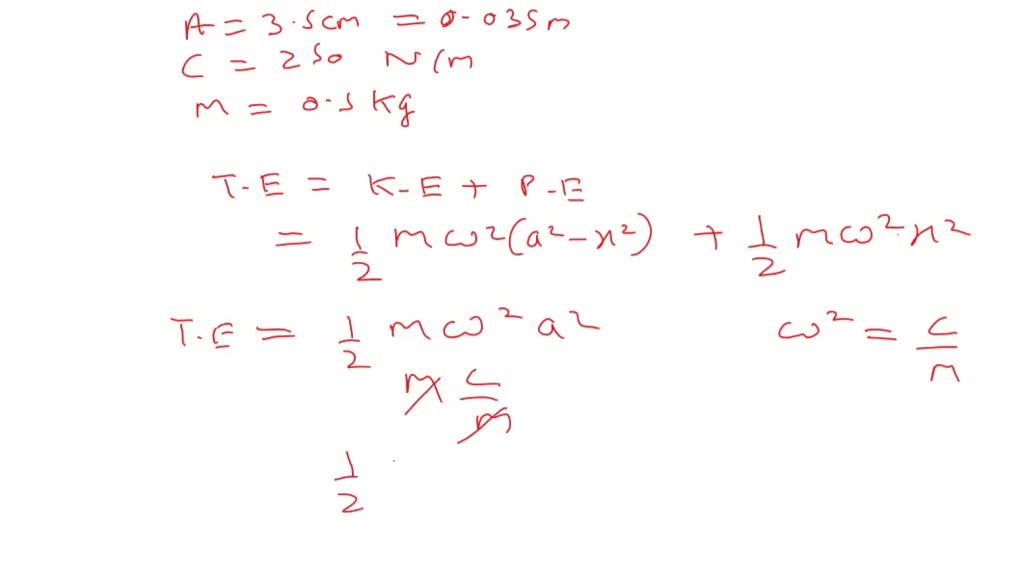 A = 3.5cm = 0.035m
C = 250 N/m
M = 0.5 kg
T.E = K-E + P-E
= 1/2 mω²(a²-x²) + 1/2 mω²x²
T.E = 1/2 mω²a² ω² = c/m
m c/m
1/2